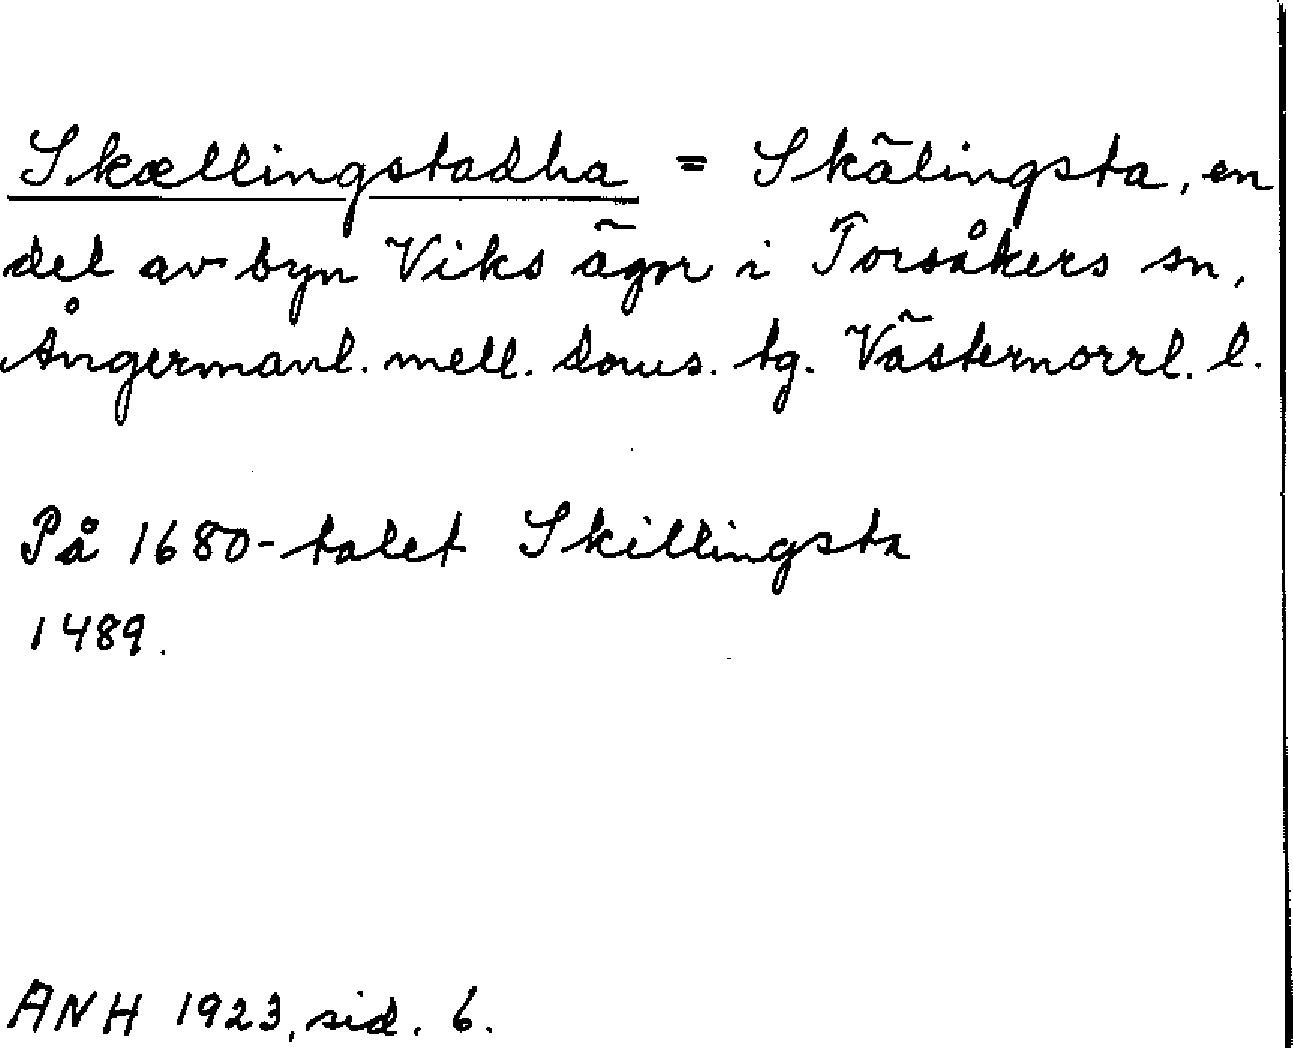 Skællingstadha = Skälingsta, en
del av byn Viks ägor i Torsåkers sn,
Ångermanl. mell. doms. tg. Västernorrl. l.
På 1680-talet Skillingsta
1489.
ANH 1923, sid. 6.